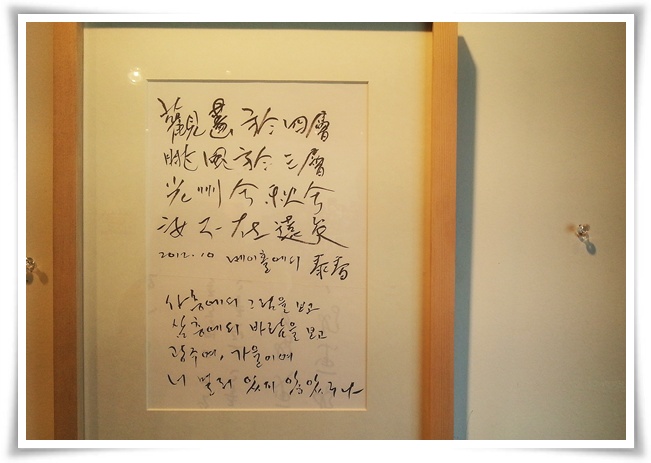 觀畵於四層
眺風於三層
光州兮秋兮
汝不在遠矣
2012.10 메이홀에서
사층에서 그림을 보고
삼층에서 바람을 보고
광주여, 가을이여
너 멀리 있지 않았구나